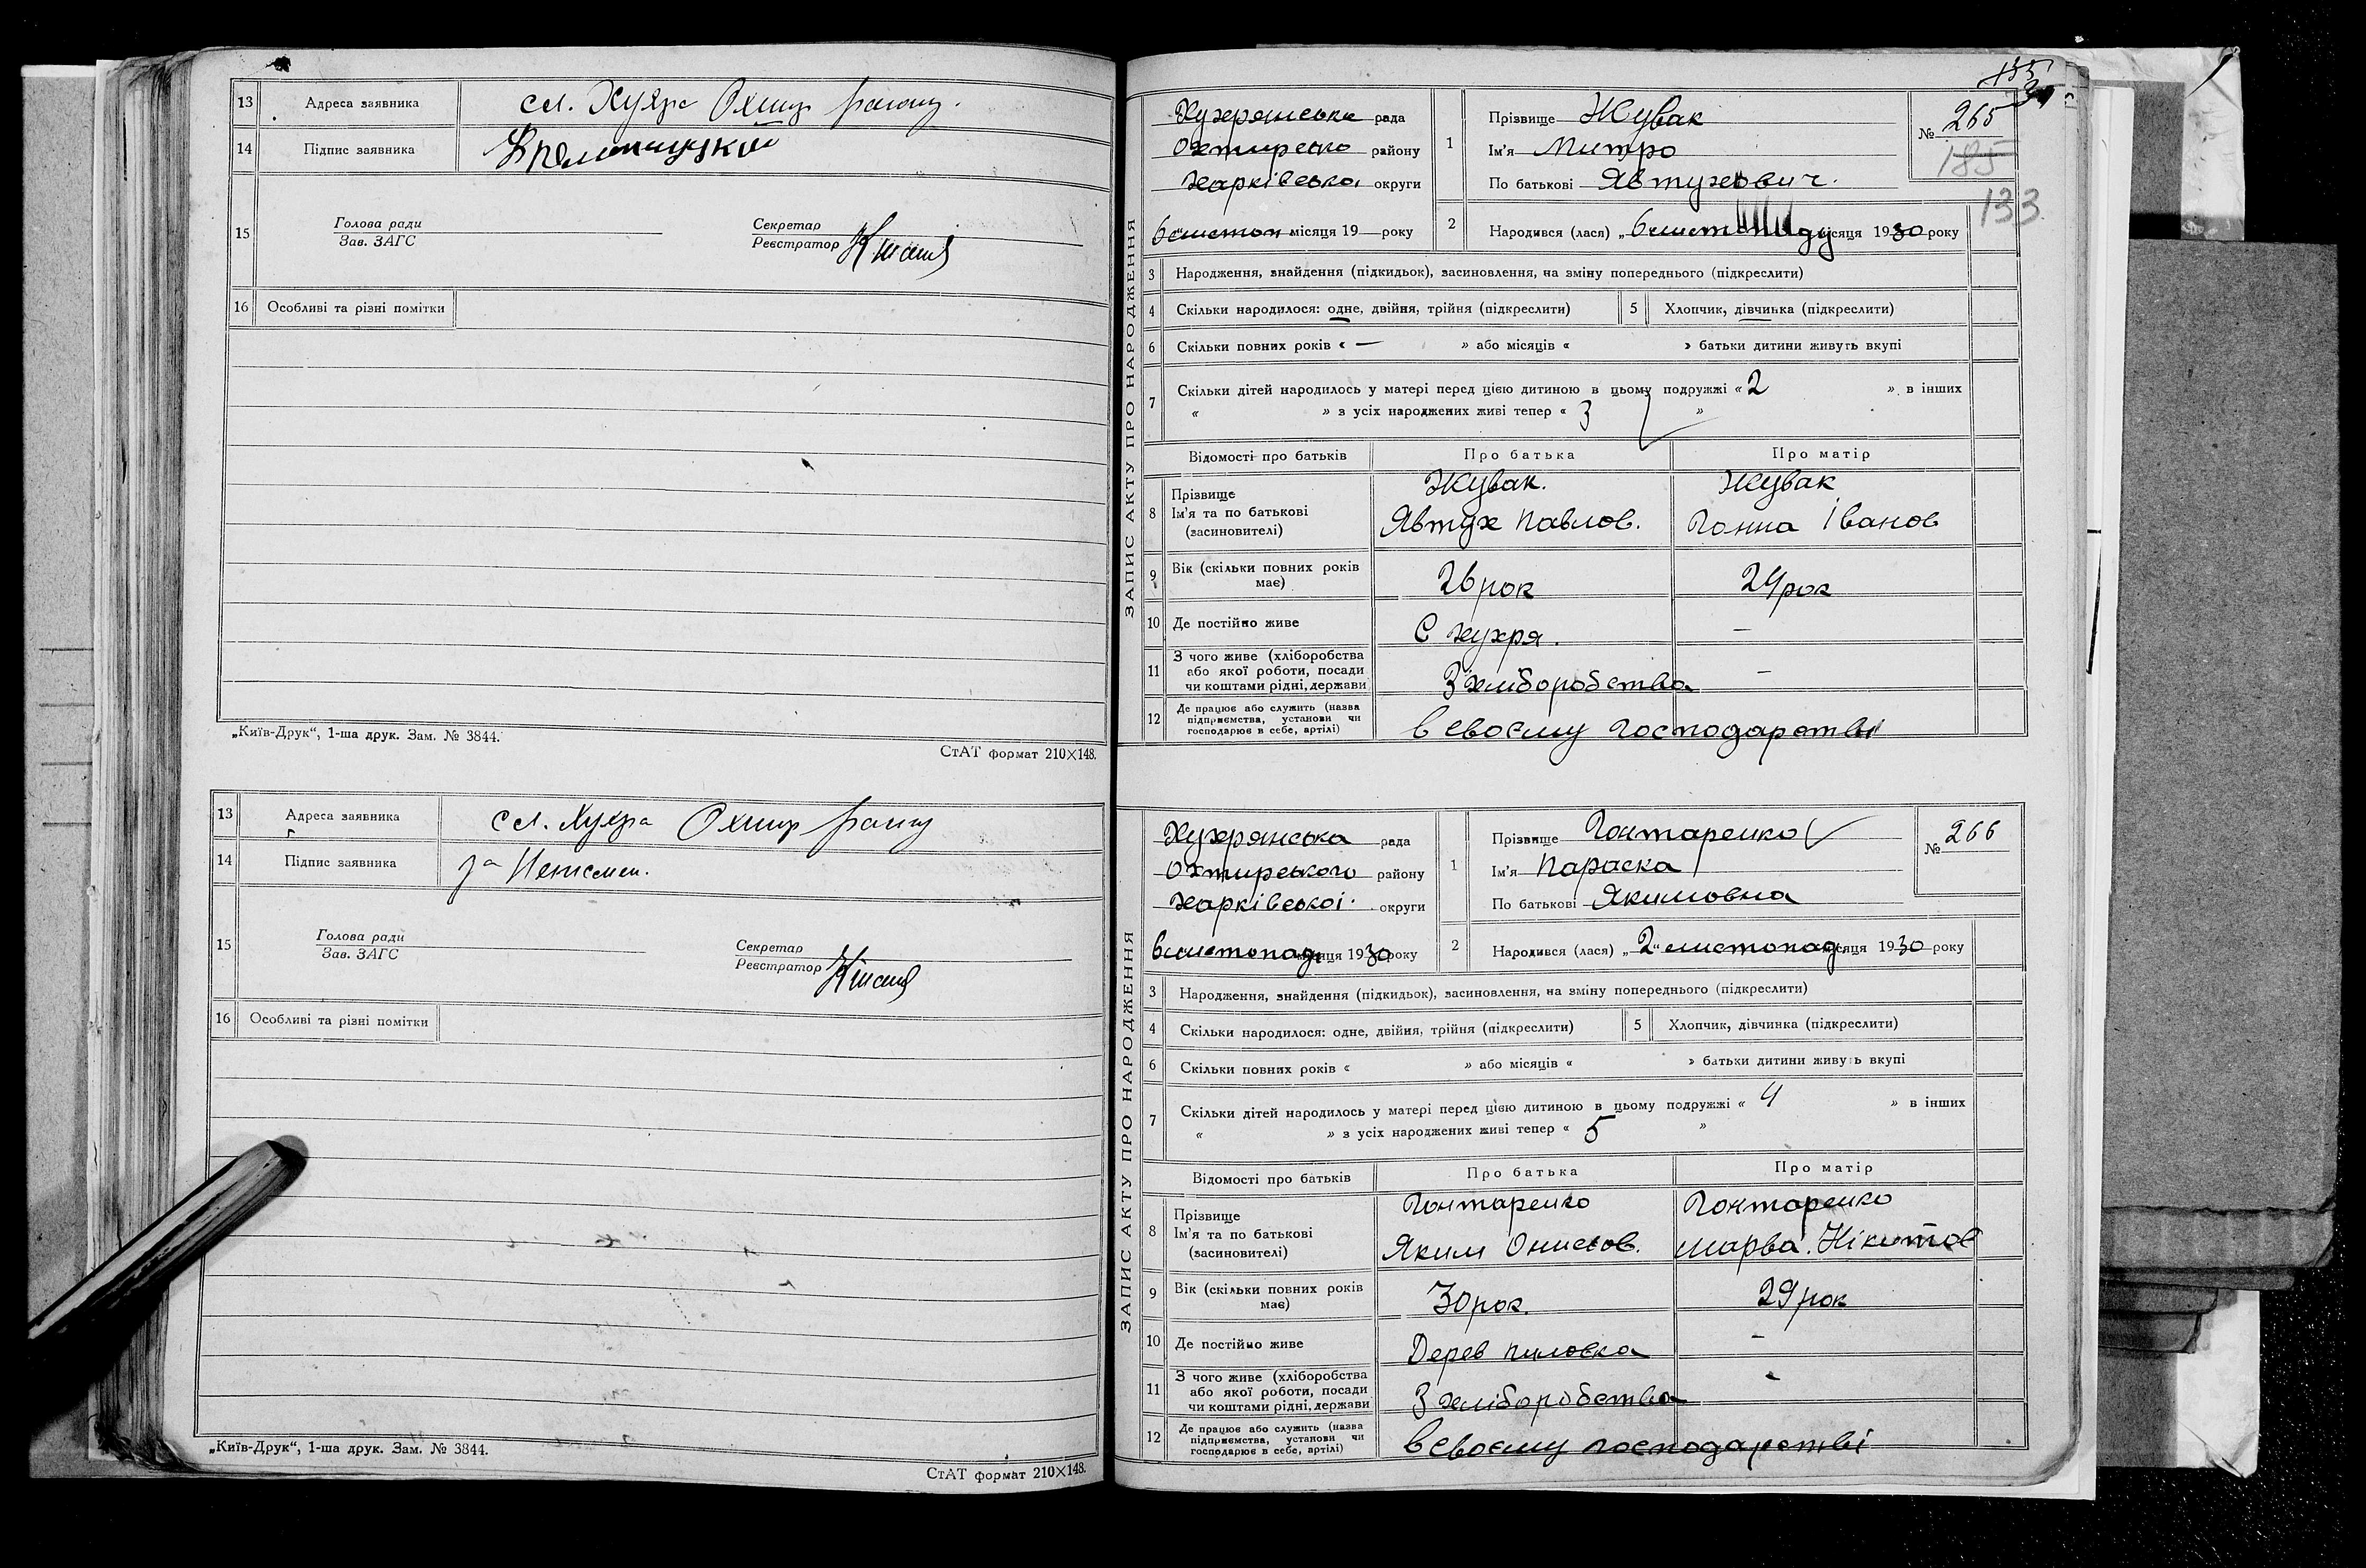 13 Адреса заявника сл. Хухра Охтир району.
14 Підпис заявника
15 Голова ради
Зав. ЗАГС
Секретар
Реєстратор
16 Особливі та різні помітки
„Київ-Друк“, 1-ша друк. Зам. № 3844.
СтАТ формат 210×148.
13 Адреса заявника сл. Хухра Охтир району
14 Підпис заявника за Неписмен.
15 Голова ради
Зав. ЗАГС
Секретар
Реєстратор
16 Особливі та різні помітки
„Київ-Друк“, 1-ша друк. Зам. № 3844.
СтАТ формат 210×148.
ЗАПИС АКТУ ПРО НАРОДЖЕННЯ
Хухрянська рада
Охтирсько району
Харківська округи
6 листоп місяця 19 року
1 Прізвище Жувак
Ім'я Митро
По батькові Явтухович.
№ 265
185
133
2 Народився (лася) „6 листопаду місяця 1930 року
3 Народження, знайдення (підкидьок), засиновлення, на зміну попереднього (підкреслити)
4 Скільки народилося: одне, двійня, трійня (підкреслити)
5 Хлопчик, дівчинка (підкреслити)
6 Скільки повних років « — » або місяців « » батьки дитини живуть вкупі
7 Скільки дітей народилось у матері перед цією дитиною в цьому подружжі « 2 » в інших
« » з усіх народжених живі тепер « 3 »
Відомості про батьків Про батька Про матір
8 Прізвище
Ім'я та по батькові
(засиновителі)
Жувак. Жувак
Явтух Павлов. Ганна Іванов
9 Вік (скільки повних років
має)
26 рок 24 рок
10 Де постійно живе С Хухря. —
11 З чого живе (хліборобства
або якої роботи, посади
чи коштами рідні, держави
З хліборобства —
12 Де працює або служить (назва
підприємства, установи чи
господарює в себе, артілі)
в своєму господарстві
ЗАПИС АКТУ ПРО НАРОДЖЕННЯ
Хухрянська рада
Охтирського району
Харківської округи
6 листопад місяця 1930 року
1 Прізвище Гонтаренко
Ім'я Параска
По батькові Якимовна
№ 266
2 Народився (лася) „2“ листопад місяця 1930 року
3 Народження, знайдення (підкидьок), засиновлення, на зміну попереднього (підкреслити)
4 Скільки народилося: одне, двійня, трійня (підкреслити)
5 Хлопчик, дівчинка (підкреслити)
6 Скільки повних років « » або місяців « » батьки дитини живуть вкупі
7 Скільки дітей народилось у матері перед цією дитиною в цьому подружжі « 4 » в інших
« » з усіх народжених живі тепер « 5 »
Відомості про батьків Про батька Про матір
8 Прізвище
Ім'я та по батькові
(засиновителі)
Гонтаренко Гонтаренко
Яким Онисов. Марва. Нікитов
9 Вік (скільки повних років
має)
30 рок. 29 рок
10 Де постійно живе Дерев Пиловка —
11 З чого живе (хліборобства
або якої роботи, посади
чи коштами рідні, держави
З хліборобства
12 Де працює або служить (назва
підприємства, установи чи
господарює в себе, артілі)
в своєму господарстві